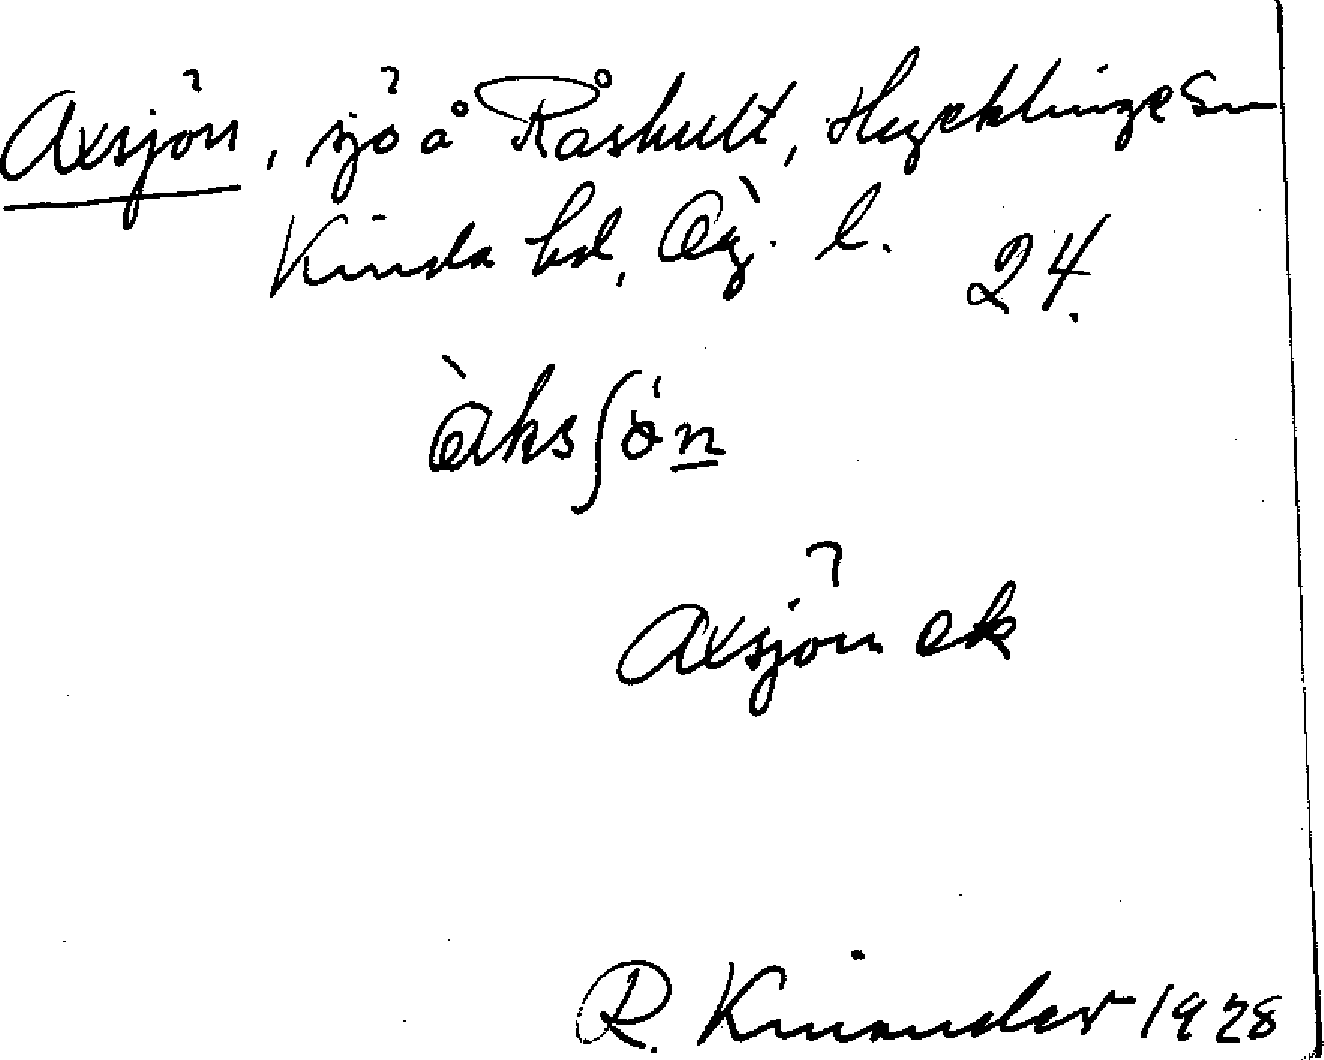 Axsjön, sjö å Råshult, Hycklinge sn
Kinda hd, Ög. l. 24.
àksʃö́n
Axsjön ek
R. Kinander 1928